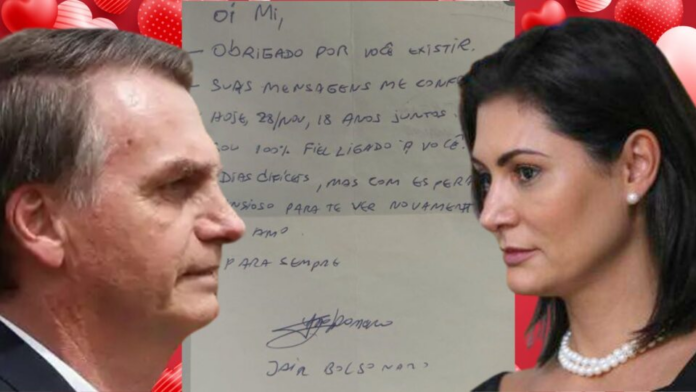 Oi Mi,
- OBRIGADO POR VOCÊ EXISTIR.
- SUAS MENSAGENS ME
HOJE, 28/NOV, 18 ANOS JUNTOS.
100% FIEL LIGADO A VOCÊ
DIAS DIFÍCEIS, MAS COM
PARA TE VER
PARA SEMPRE
JAIR BOLSONARO